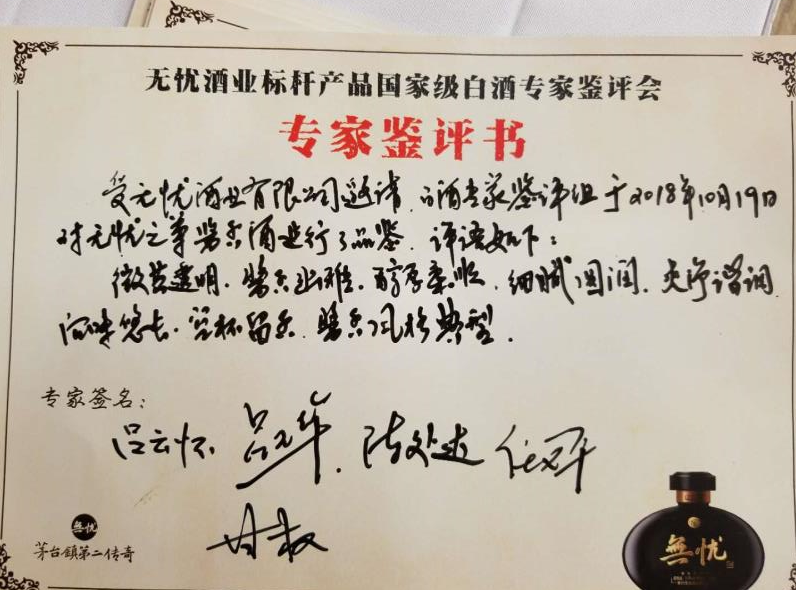 无忧酒业标杆产品国家级白酒专家鉴评会
专家鉴评书
受无忧酒业有限公司邀请，白酒专家鉴评组于2018年10月19日
对无忧之尊酱香酒进行了品鉴，评语如下：
微黄透明、酱香幽雅、醇厚柔顺、细腻圆润、爽净谐调
回味悠长、空杯留香、酱香风格典型。
专家签名：
吕云怀
無忧
茅台鎮第二传奇
無忧